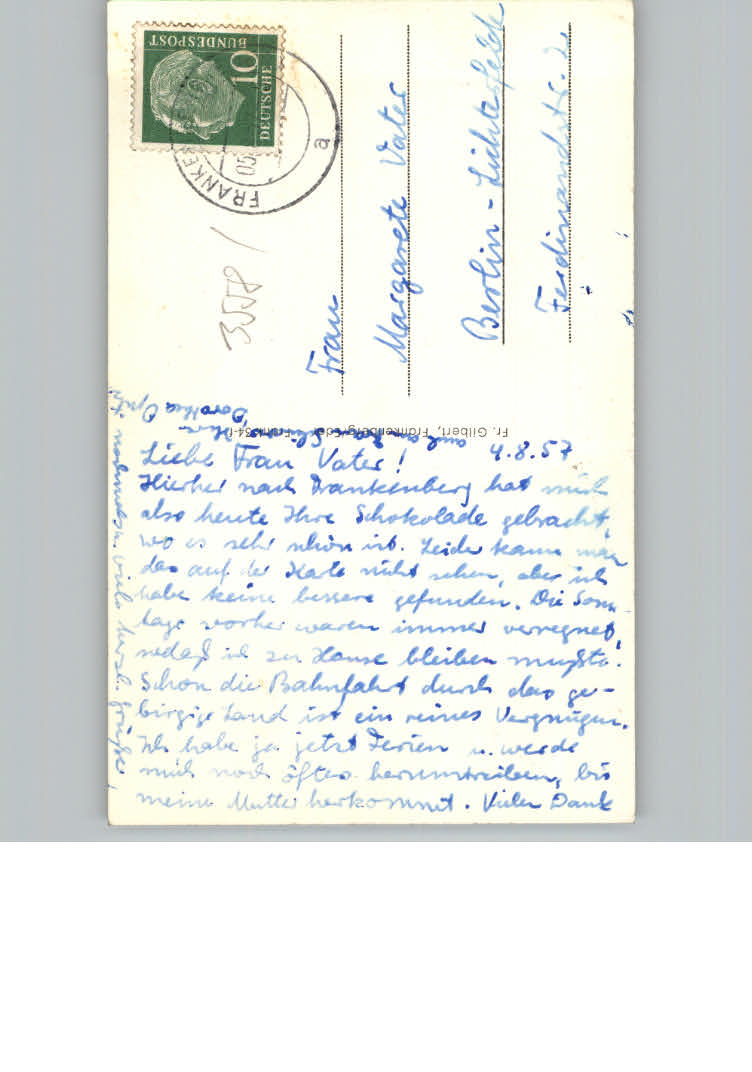 DEUTSCHE
BUNDESPOST
10
FRANKENBERG
05
a
3558 /
Frau
Margarete Vater
Berlin-Lichterfelde
Ferdinandstr. 2
Fr. Gilbert, Frankenberg/Eder
4.8.57
Liebe Frau Vater!
Hierher nach Frankenberg hat mich
also heute Ihre Schokolade gebracht,
wo es sehr schön ist. Leider kann man
das auf der Karte nicht sehen, aber ich
habe keine bessere gefunden. Die Sonn
tage vorher waren immer verregnet,
sodaß ich zu Hause bleiben mußte.
Schon die Bahnfahrt durch das ge-
birgige Land ist ein reines Vergnügen.
Ich habe ja jetzt Ferien u. werde
mich noch öfter herumtreiben, bis
meine Mutter herkommt. Vielen Dank
nochmals u. viele herzl. Grüße!
auch an
Ihre
Dorothea